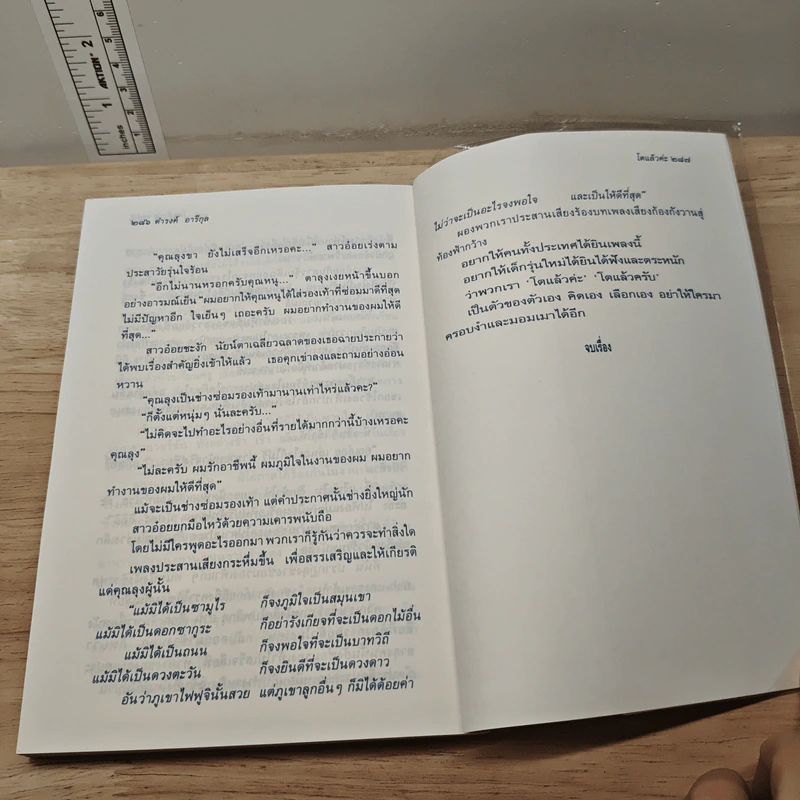 inches
1
AKTION
2
5
6
๒๘๖ ดำรงค์ อารีกุล
"คุณลุงขา ยังไม่เสร็จอีกเหรอคะ..." สาวอ๋อยเร่งตาม
ประสาวัยรุ่นใจร้อน
"อีกไม่นานหรอกครับคุณหนู..." ตาลุงเงยหน้าขึ้นบอก
อย่างอารมณ์เย็น "ผมอยากให้คุณหนูได้ใส่รองเท้าที่ซ่อมมาดีที่สุด
ไม่มีปัญหาอีก ใจเย็นๆ เถอะครับ ผมอยากทำงานของผมให้ดี
ที่สุด..."
สาวอ๋อยชะงัก นัยน์ตาเฉลียวฉลาดของเธอฉายประกายว่า
ได้พบเรื่องสำคัญยิ่งเข้าให้แล้ว เธอคุกเข่าลงและถามอย่างอ่อน
หวาน
"คุณลุงเป็นช่างซ่อมรองเท้ามานานเท่าไหร่แล้วคะ?"
"ก็ตั้งแต่หนุ่มๆ นั่นละครับ..."
"ไม่คิดจะไปทำอะไรอย่างอื่นที่รายได้มากกว่านี้บ้างเหรอคะ
คุณลุง"
"ไม่ละครับ ผมรักอาชีพนี้ ผมภูมิใจในงานของผม ผมอยาก
ทำงานของผมให้ดีที่สุด"
แม้จะเป็นช่างซ่อมรองเท้า แต่คำประกาศนั้นช่างยิ่งใหญ่นัก
สาวอ๋อยยกมือไหว้ด้วยความเคารพนับถือ
โดยไม่มีใครพูดอะไรออกมา พวกเราก็รู้กันว่าควรจะทำสิ่งใด
เพลงประสานเสียงกระหึ่มขึ้น เพื่อสรรเสริญและให้เกียรติ
แด่คุณลุงผู้นั้น
"แม้มิได้เป็นซามูไร ก็จงภูมิใจเป็นสมุนเขา
แม้มิได้เป็นดอกซากุระ ก็อย่ารังเกียจที่จะเป็นดอกไม้อื่น
แม้มิได้เป็นถนน ก็จงพอใจที่จะเป็นบาทวิถี
แม้มิได้เป็นดวงตะวัน ก็จงยินดีที่จะเป็นดวงดาว
อันว่าภูเขาไฟฟูจินั้นสวย แต่ภูเขาลูกอื่นๆ ก็มิได้ด้อยค่า
โตแล้วค่ะ ๒๘๗
ไม่ว่าจะเป็นอะไรจงพอใจ และเป็นให้ดีที่สุด"
ผองพวกเราประสานเสียงร้องบทเพลงเสียงก้องกังวานสู่
ท้องฟ้ากว้าง
อยากให้คนทั้งประเทศได้ยินเพลงนี้
อยากให้เด็กรุ่นใหม่ได้ยินได้ฟังและตระหนัก
ว่าพวกเรา 'โตแล้วค่ะ' 'โตแล้วครับ'
เป็นตัวของตัวเอง คิดเอง เลือกเอง อย่าให้ใครมา
ครอบงำและมอมเมาได้อีก
จบเรื่อง